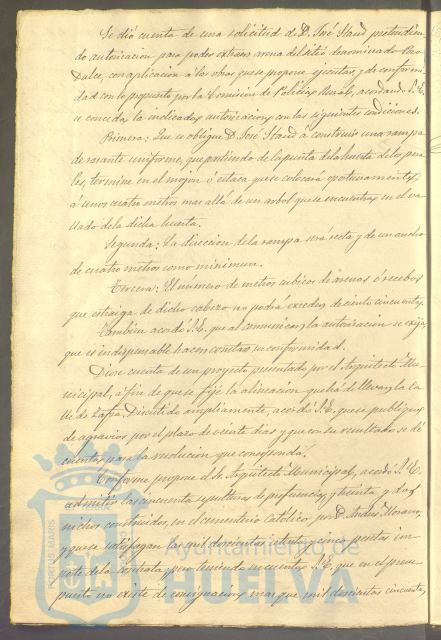 Se dió cuenta de una solicitud de D. José Staud pretendien-
do autorizacion para poder extraer arena del sitio denominado Pozo
Dulce, con aplicacion á las obras que se propone ejecutar, y de conformi-
dad con lo propuesto por la Comision de Policía Rural, acordando S. E.
se conceda la indicada autorizacion con las siguientes condiciones.
Primera: Que se obligue D. José Staud á construir una rampa
de rasante uniforme, que partiendo de la punta de la huerta de los pera-
les, termine en el mojon ó estaca que se colocará oportunamente
á unos cuatro metros mas allá de un arbol que se encuentra en el va-
llado de la dicha huerta.
Segunda: La direccion de la rampa será recta y de un ancho
de cuatro metros como minimun.
Tercera: El número de metros cúbicos de arenas ó recebos
que extraiga de dicho cabezo no podrá exceder de ciento cincuenta.
Tambien acordó S. E. que al comunicar la autorizacion se exija,
que es indispensable hacer constar su conformidad.
Diose cuenta de un proyecto presentado por el Arquitecto Mu-
nicipal, á fin de que se fije la alineacion que há de llevar la ca-
lle de Zafra. Discutido ampliamente, acordó S. E. que se publique
de agravios por el plazo de veinte dias y que con su resultado se dé
cuenta para la resolucion que corresponda.
Conforme propone el Sr. Arquitecto Municipal, acordó S. E.
admitir las cincuenta sepulturas de preferencia, y treinta y dos
nichos construidos en el cementerio Católico por D. Andrés Moreno,
y que se satisfagan las mil doscientas setenta y cinco pesetas im-
porte de la contrata, pero teniendo en cuenta S. E. que en el presu-
puesto no existe de consignacion mas que mil doscientas cincuenta,
PORTUS MARIS
Ayuntamiento de
HUELVA